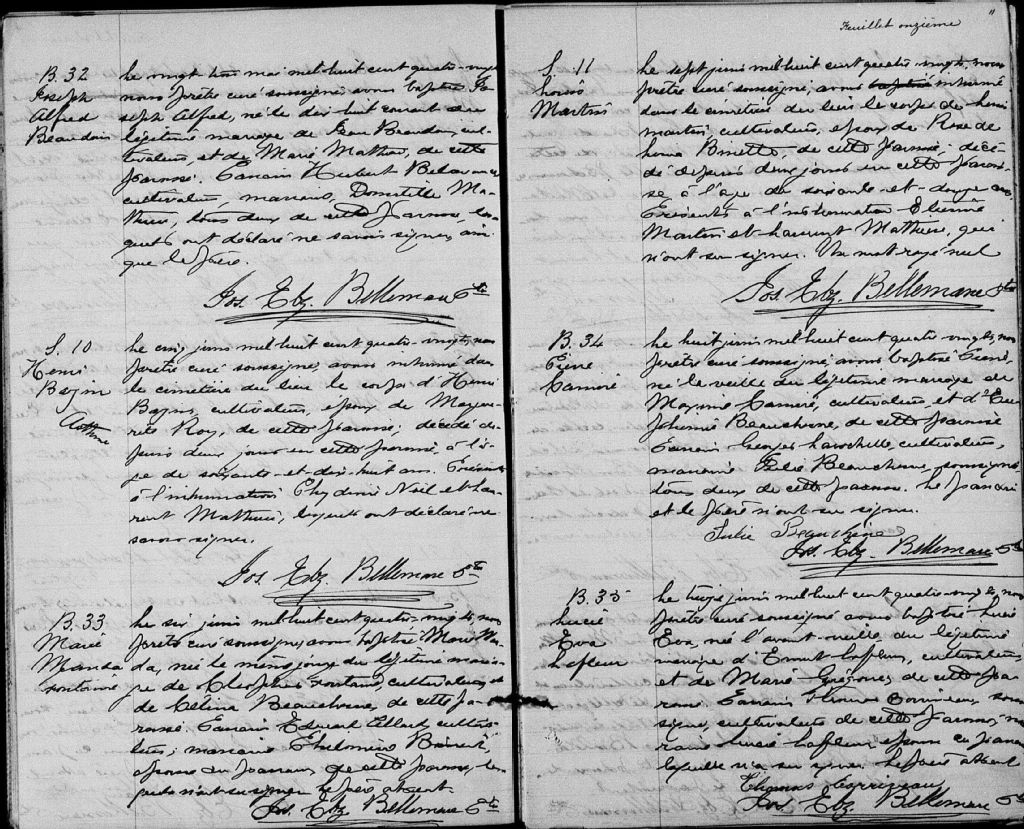 B. 32
Joseph
Alfred
Beaudoin
Le vingt trois mai mil huit cent quatre-vingt
nous prêtre curé soussigné avons baptisé Jo
seph Alfred, né le dix huit courant du
légitime mariage de Jean Beaudoin, cul-
tivateur, et de Marie Mathieu, de cette
paroisse. Parrain Hubert
cultivateur, marraine, Domitille Ma-
thieu, tous deux de cette paroisse, les-
quels ont déclaré ne savoir signer, ainsi
que le père.
Jos. Elz. Bellemare Ptre
S. 10
Henri
Bazin
Le cinq juin mil huit cent quatre-vingts, nous
prêtre curé soussigné, avons inhumé dans
le cimetière du lieu le corps d'Henri
Bazin, cultivateur, époux de Margue-
rite Roy, de cette paroisse; décédé de-
puis deux jours en cette paroisse, à l'â-
ge de soixante et dix-huit ans. Présents
à l'inhumation Noël et Lau-
rent Mathieu, lesquels ont déclaré ne
savoir signer.
Jos. Elz. Bellemare Ptre
B. 33
Marie
Manda
Fontaine
Le six juin mil huit cent quatre-vingts, nous
prêtre curé soussigné, avons baptisé Marie Man-
da, née le même jour du légitime maria-
ge de Cléophas Fontaine, cultivateur, et
de Célina Beauchesne, de cette pa-
roisse. Parrain Edouard cultiva-
teur; marraine Philomène
épouse du parrain, de cette paroisse, les-
quels n'ont su signer. Le père absent.
Jos. Elz. Bellemare Ptre
Feuillet onzième
11
S. 11
Louis
Martin
Le sept juin mil huit cent quatre-vingts, nous
prêtre curé soussigné, avons baptisé inhumé
dans le cimetière du lieu le corps de Louis
Martin, cultivateur, époux de Rose de
Lima Binette, de cette paroisse; décé-
dé depuis deux jours en cette parois-
se à l'âge de soixante-et-douze ans
Présents à l'inhumation Etienne
Martin et Laurent Mathieu, qui
n'ont su signer. Un mot rayé nul
Jos. Elz. Bellemare Ptre
B. 34
Pierre
Camiré
Le huit juin mil huit cent quatre-vingts, nous
prêtre curé soussigné avons baptisé Pierre,
né la veille du légitime mariage de
Maxime Camiré, cultivateur et d'Eu-
phémie Beauchesne, de cette paroisse
Parrain Georges Larochelle, cultivateur,
marraine Julie Beauchesne, soussignée
tous deux de cette paroisse. Le parrain
et le père n'ont su signer.
Julie Beauchène
Jos. Elz. Bellemare Ptre
B. 35
Lucie
Eva
Lafleur
Le treize juin mil huit cent quatre-vingts, nous
prêtre curé soussigné avons baptisé Lucie
Eva, née l'avant-veille du légitime
mariage d'Ernest Lafleur, cultivateur,
et de Marie Grégoire, de cette pa-
roisse. Parrain Thomas Corriveau, sous-
signé, cultivateur de cette paroisse, mar-
raine Lucie Lafleur épouse du parrain
laquelle n'a su signer. Le père absent
Thomas Corriveau
Jos. Elz. Bellemare Ptre